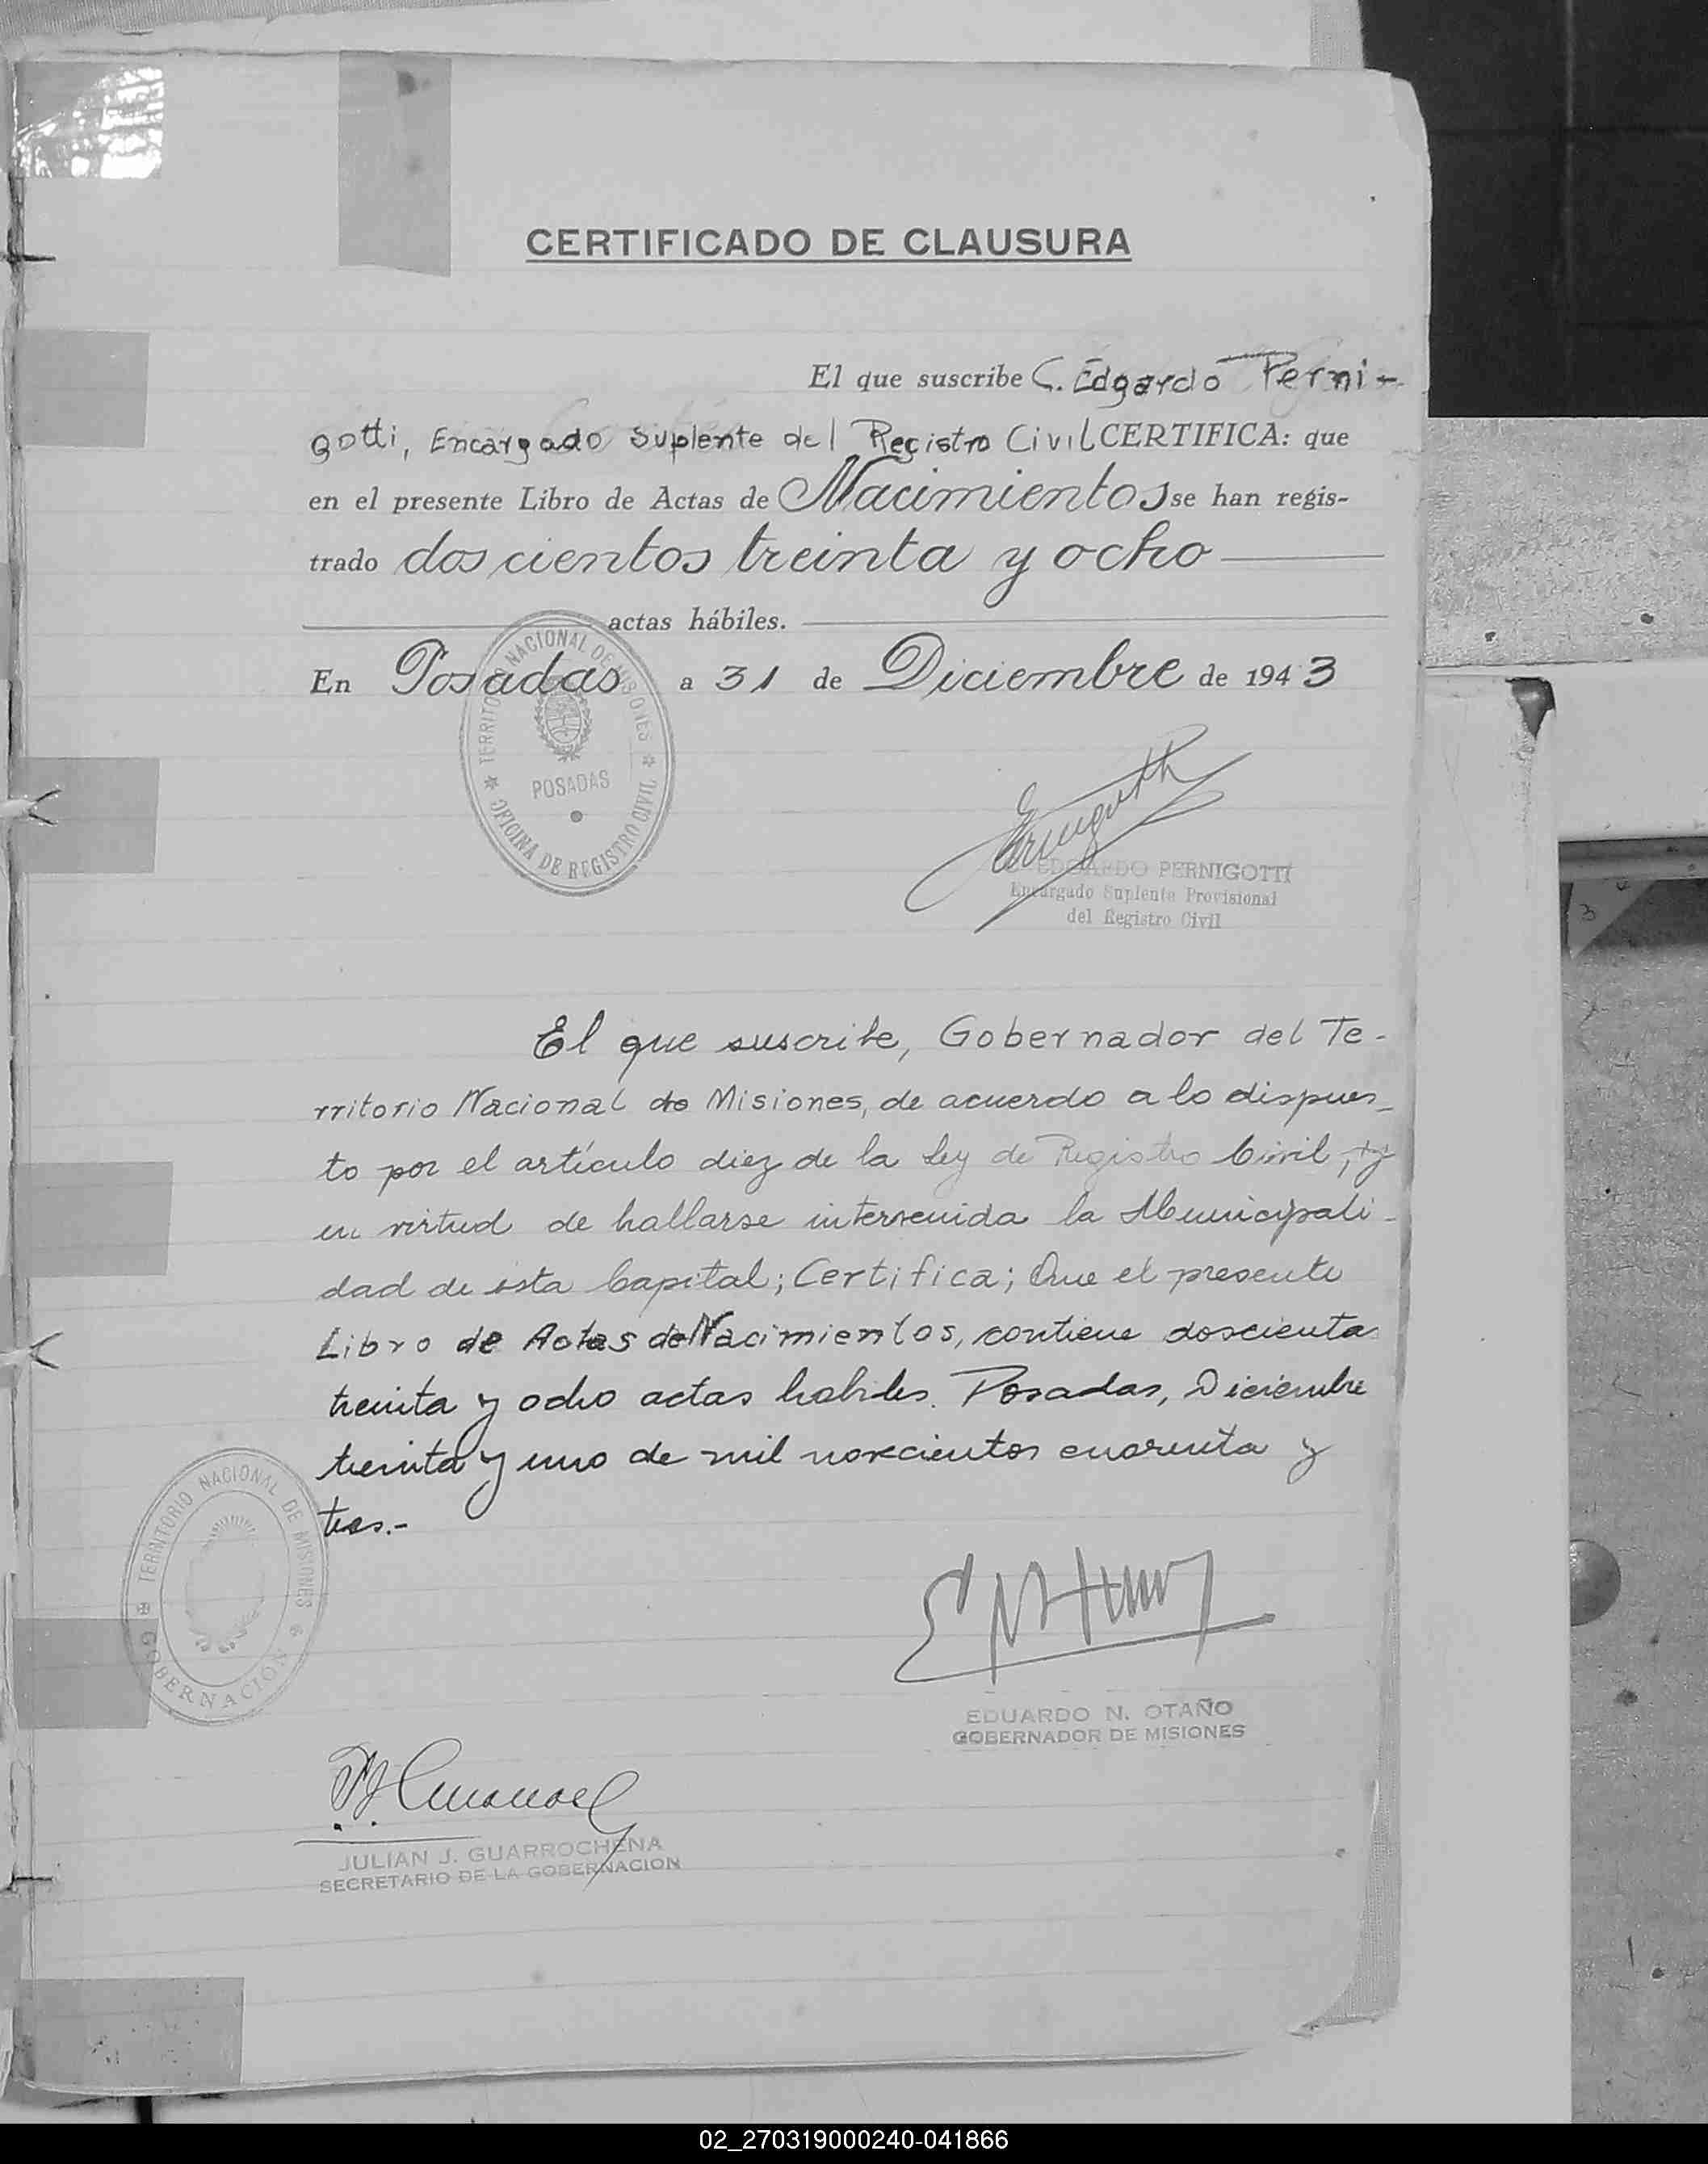 CERTIFICADO DE CLAUSURA
El que suscribe C. Edgardo Perni-
gotti, Encargado Suplente del Registro Civil CERTIFICA: que
en el presente Libro de Actas de Nacimientos se han regis-
trado doscientos treinta y ocho
actas hábiles.
En Posadas a 31 de Diciembre de 1943
TERRITORIO NACIONAL DE MISIONES
POSADAS
OFICINA DE REGISTRO CIVIL
C. EDGARDO PERNIGOTTI
Encargado Suplente Provisional
del Registro Civil
El que suscribe, Gobernador del Te-
rritorio Nacional de Misiones, de acuerdo a lo dispues-
to por el artículo diez de la Ley de Registro Civil, y
en virtud de hallarse intervenida la Municipali-
dad de esta Capital; Certifica; Que el presente
Libro de Actas de Nacimientos, contiene doscienta
treinta y ocho actas habiles. Posadas, Diciembre
treinta y uno de mil novecientos cuarenta y
tres.-
TERRITORIO NACIONAL DE MISIONES
GOBERNACIÓN
EDUARDO N. OTAÑO
GOBERNADOR DE MISIONES
JULIAN J. GUARROCHENA
SECRETARIO DE LA GOBERNACION
3
02_270319000240-041866